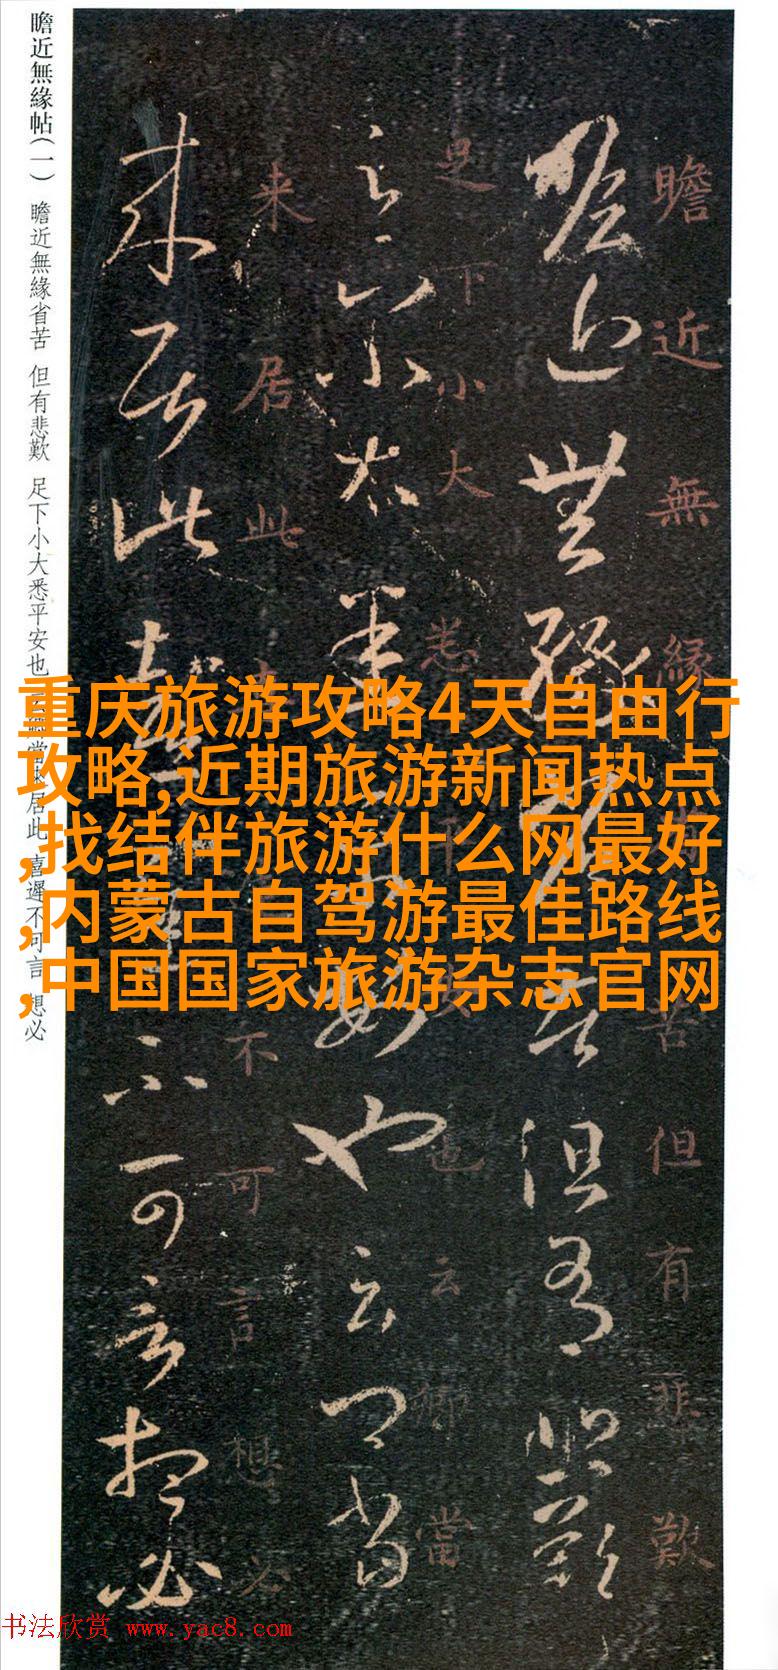 瞻近無緣帖(一)　瞻近無緣省苦　但有悲歎　足下小大悉平安也
居此　喜遲不可言　想必
瞻近無緣
苦但有悲歎
足下小大悉
也云卿當
来居此
不可言想必
重庆旅游攻略4天自由行
攻略,近期旅游新闻热点
,找结伴旅游什么网最好
,内蒙古自驾游最佳路线
,中国国家旅游杂志官网
书法欣赏 www.yac8.com